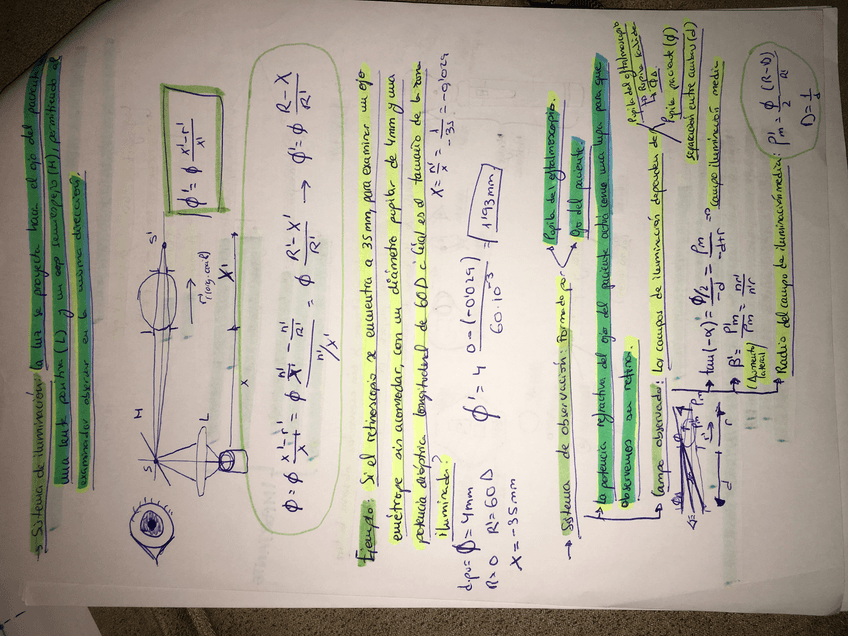 → Sistema de iluminación: la luz se proyecta hacia el ojo del paciente
una lente positiva (L) y un semiespejo (H), permitiendo al
examinador observar en la misma dirección.
H
S
S'
L
r' (long. ocular)
x
x'
ϕ' = ϕ (x'-r')/x'
ϕ = ϕ (x'-r')/x' = ϕ (n'/R' - n'/X')/(n'/x') = ϕ (R'-X')/R' → ϕ' = ϕ (R-X)/R'
Ejemplo: Si el retinoscopio se encuentra a 35mm, para examinar un ojo
emétrope sin acomodar, con un diámetro pupilar de 4mm y una
potencia dióptrica longitudinal de 60D ¿Cuál es el tamaño de la zona
iluminada?
X = n'/x = 1/-35 = -0'029
dpu = ϕ = 4mm
R = 0 R' = 60D
X = -35mm
ϕ' = 4 (0-(-0'029))/(60·10⁻³) = 1'93mm
→ Sistema de observación: Formado por
Pupila del oftalmoscopio.
Ojo del paciente.
→ la potencia refractiva del ojo del paciente actúa como una lupa para que
observemos su retina.
→ Campo observado: Los campos de iluminación dependen de
Pupila del oftalmoscopio
Pupila paciente (ϕ)
separación entre ambas (d)
→ tan(-α) = (ϕ/2)/-d = ρm/(-d+r) ⇒ campo iluminación media
→ β' = ρ'm/ρm = nr'/n'r
(Aumento lateral)
→ Radio del campo de iluminación media: ρ'm = ϕ/2 (R-D)/R'
D = 1/d